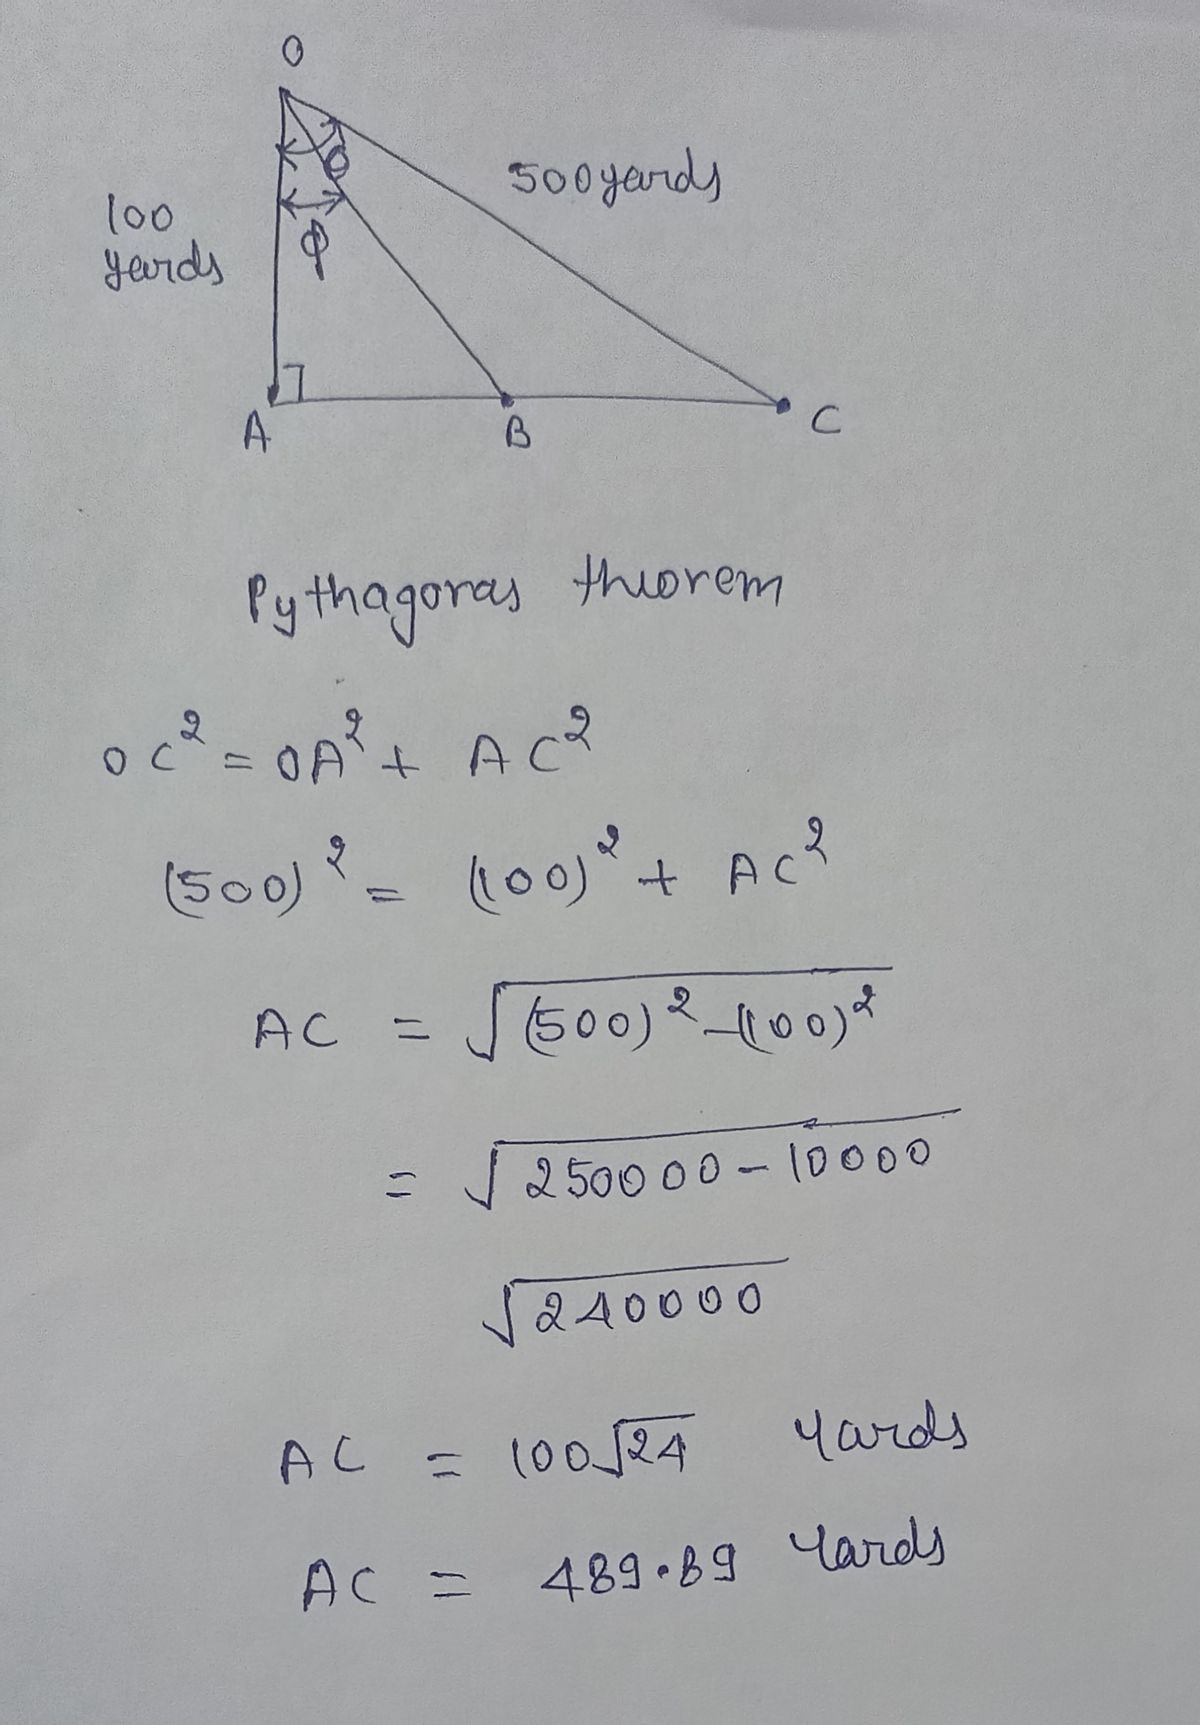 O
100
yards
θ
ϕ
500yards
A
B
C
Pythagoras theorem
OC² = OA² + AC²
(500)² = (100)² + AC²
AC = √(500)² - (100)²
= √250000 - 10000
√240000
AC = 100√24 yards
AC = 489.89 yards